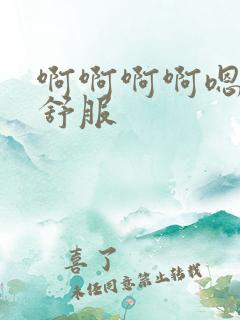 啊啊啊啊嗯
舒服
喜了
未经同意禁止转载